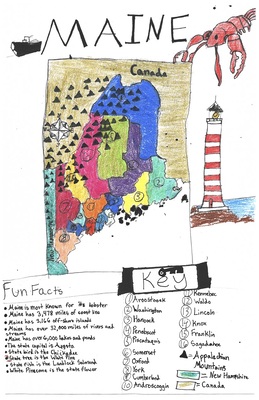 MAINE
Canada
New Hampshire
Fun Facts
• Maine is most known for the lobster
• Maine has 3,478 miles of coast line
• Maine has 3,166 off-shore islands
• Maine has over 32,000 miles of rivers and
streams
• Maine has over 6,000 lakes and ponds
• The state capital is Augusta
• State bird is the Chickadee
• State tree is the White Pine
• State fish is the Landlock Salmond
• White Pinecone is the state flower
Key
① Aroostook
② Washington
③ Hancock
④ Penobscot
⑤ Piscataquis
⑥ Somerset
⑦ Oxford
⑧ York
⑨ Cumberland
⑩ Androscoggin
⑪ Kennebec
⑫ Waldo
⑬ Lincoln
⑭ Knox
⑮ Franklin
⑯ Sagadahoc
▲ = Appalachian
Mountains
= New Hampshire
= Canada